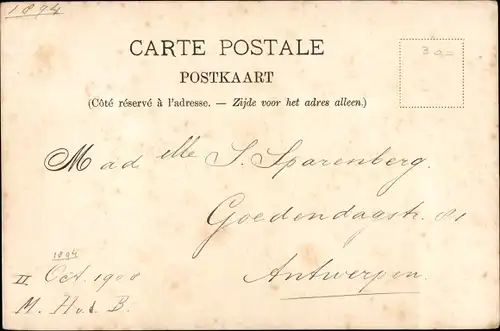 1894
CARTE POSTALE
POSTKAART
(Côté réservé à l'adresse. — Zijde voor het adres alleen.)
Mad elle S. Sparenberg.
Goedendagstr. 81
Antwerpen.
1894
II Oct. 1900
M. H. d. B.